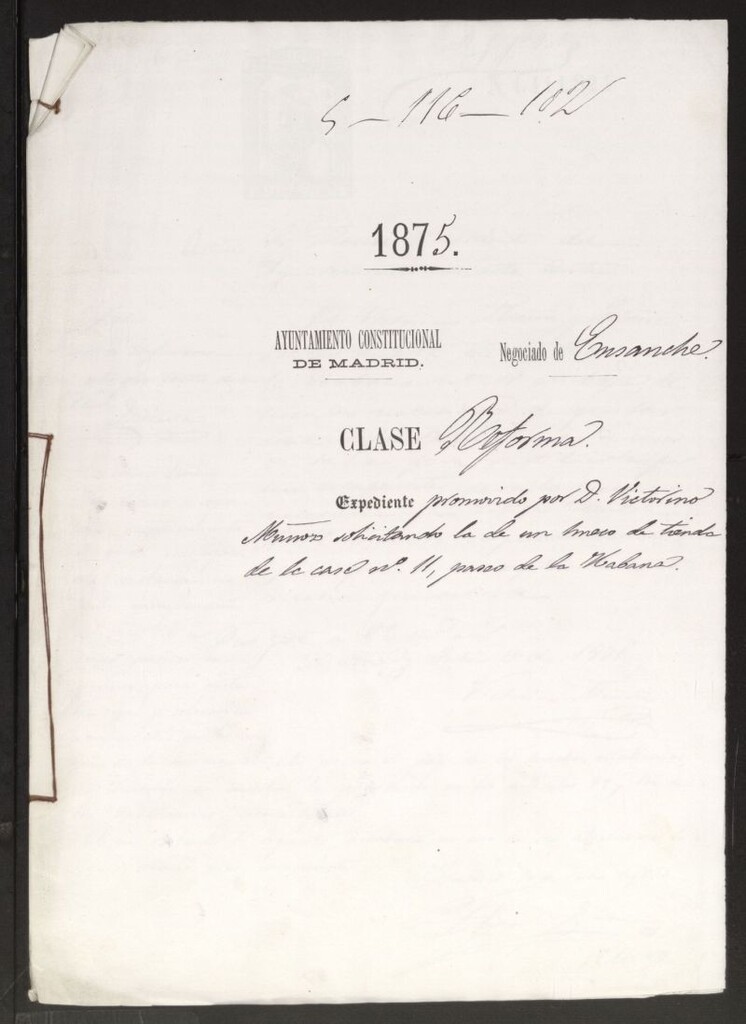 5 - 116 - 102
1875.
AYUNTAMIENTO CONSTITUCIONAL
DE MADRID.
Negociado de Ensanche.
CLASE Reforma.
Expediente promovido por D. Victorino
Muñoz solicitando la de un hueco de tienda
de la casa nº. 11, paseo de la Habana.